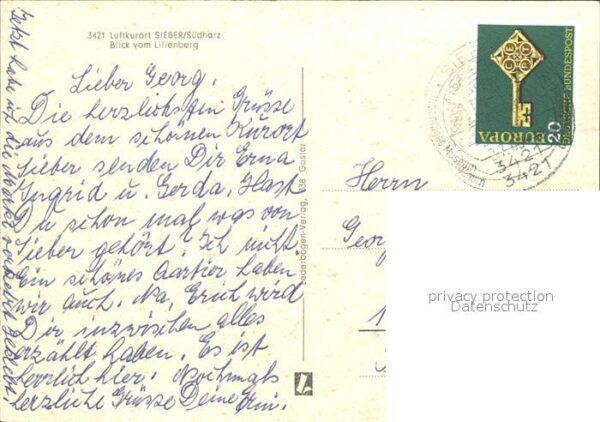 3421 Luftkurort SIEBER/Südharz
Blick vom Lilienberg
Lieber Georg.
Die herzlichsten Grüsse
aus dem schönen Kurort
Sieber senden Dir Erna
Ingrid u. Gerda. Hast
Du schon mal was von
Sieber gehört. Ich nicht.
Ein schönes Qartier haben
wir auch. Na, Erich wird
Dir inzwischen alles
erzählt haben. Es ist
herrlich hier. Nochmals
herzliche Grüsse Deine Erni.
Jetzt habe ich die Marke verkehrt geklebt.
Lederbogen-Verlag, 338 Goslar
EUROPA
CEPT
20
DEUTSCHE BUNDESPOST
3421
3421
Herrn
Georg
privacy protection
Datenschutz